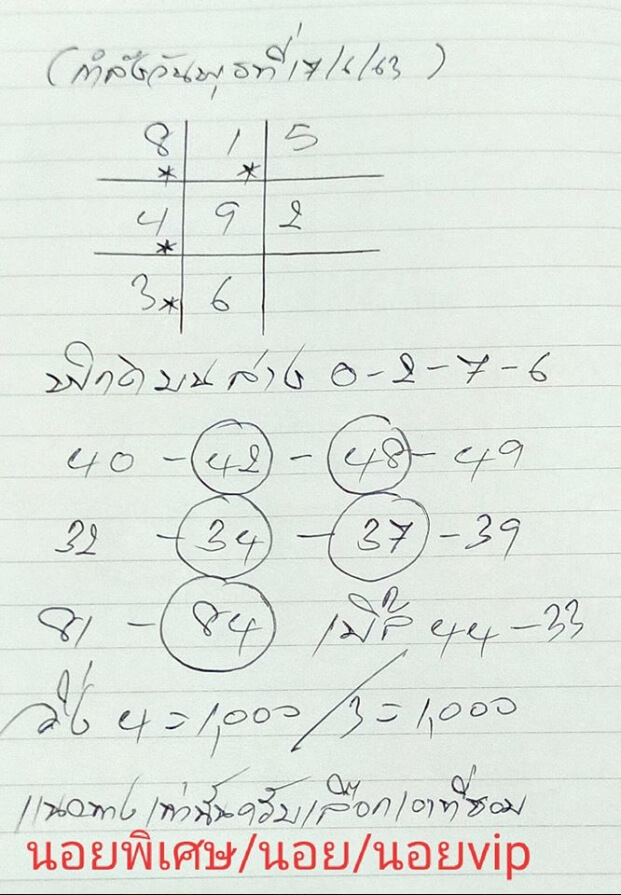 (กำลังวันพุธที่ 17/6/63)
8 1 5
* *
4 9 2
*
3* 6
พิกัด บน ล่าง 0-2-7-6
40 - 42 - 48 - 49
32 - 34 - 37 - 39
81 - 84 เบิ้ล 44-33
วิ่ง 4=1,000/3=1,000
แนวทางเท่านั้นครับเลือกเอาที่ชอบ
นอยพิเศษ/นอย/นอยvip